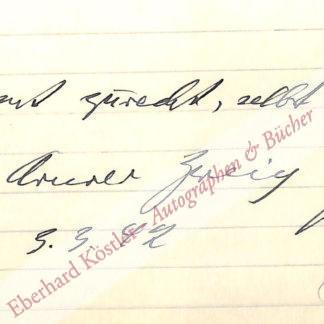 zurecht, selbst
Arnold Zweig
Eberhard Köstler Autographen & Bücher